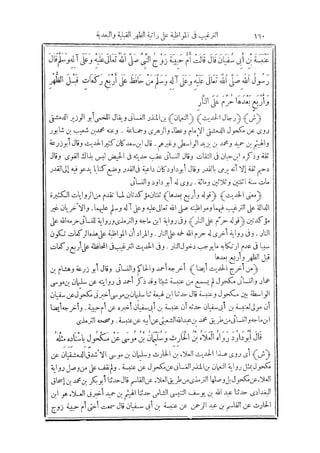 ١٦٠ الترغيب فى المواظبة على راتبة الظهر القبلية والبعدية
عنبسة بن أبى سفيان قال قالت أم حبيبة زوج النبى صلى الله تعالى عليه وعلى آله وسلم قال
رسول الله صلى الله تعالى عليه وعلى آله وسلم من حافظ على أربع ركعات قبل الظهر
وأربع بعدها حرم على النار
﴿ش﴾ ﴿رجال الحديث﴾ ﴿النعمان﴾ بن المنذر الغسانى ويقال اللخمى أبو الوزير الدمشقى
روى عن مكحول الدمشقى الإمام وعطاء والزهرى وجماعة . وعنه محمد بن شعيب بن شابور
والهيثم بن حميد ومحمد بن يزيد الواسطى وغيرهم . قال ابن سعد كان كثير الحديث وقال أبو زرعة
ثقة وذكره ابن حبان فى الثقات وقال النسائى عقب حديثه فى الحيض ليس بذاك القوى وقال
دحيم ثقة إلا أنه يرمى بالقدر وقال أبو داود كان داعية فى القدر وضع كتابا يدعو فيه إلى القدر
مات سنة اثنتين وثلاثين ومائة . روى له أبو داود والنسائى
﴿معنى الحديث﴾ ﴿قوله وأربع بعدها﴾ ثنتان مؤكدتان لما تقدم من الروايات الكثيرة
الدالة على الترغيب فيهما ومواظبته صلى الله تعالى عليه وعلى آله وسلم عليهما. والأخريان غير
مؤكدتين ﴿قوله حرم على النار﴾ وفى رواية ابن ماجه والترمذى ورواية للنسائى حرمه الله على
النار. وفى رواية أخرى له حرم الله لحمه على النار . والمراد أن المواظبة على هذه الركعات تكون
سببا فى عدم ارتكابه ما يوجب دخول النار . وفى الحديث الترغيب فى المحافظة على أربع ركعات
قبل الظهر وأربع بعدها
﴿من أخرج الحديث أيضا﴾ أخرجه أحمد والحاكم والنسائى . وقال أبو زرعة وهشام بن
عمار والنسائى مكحول لم يسمع من عنبسة شيئا وقد ذكر أحمد فى روايته عن سليمان بن موسى
الواسطة بين مكحول وعنبسة قال حدثنا ابن لهيعة ثنا سليمان بن موسى أخبرنى مكحول عن
أن مولى لعنبسة بن أبى سفيان حدثه أن عنبسة بن أبى سفيان أخبره عن أم حبيبة . وأخرجه أيضا
ابن ماجه والنسائى من طريق محمد بن عبد الله الشعيثى عن أبيه عن عنبسة . وصححه الترمذى
قال أبو داود رواه العلاء بن الحارث وسليمان بن موسى عن مكحول بإسناده مثله
﴿ش﴾ أى روى هذا الحديث العلاء بن الحارث وسليمان بن موسى الأشدق الدمشقيان عن
مكحول مثل رواية النعمان بن المنذر الغسانى عن مكحول عن عنبسة . ولم نقف على من وصل رواية
العلاء عن مكحول بل وصلها الترمذى من طريق العلاء عن القاسم قال حدثنا أبو بكر بن محمد بن إسحاق
البغدادى حدثنا عبد الله بن يوسف التنيسى الشامى حدثنا الهيثم بن حميد أخبرنى العلاء هو ابن
الحارث عن القاسم بن عبد الرحمن عن عنبسة بن أبى سفيان قال سمعت أختى أم حبيبة زوج